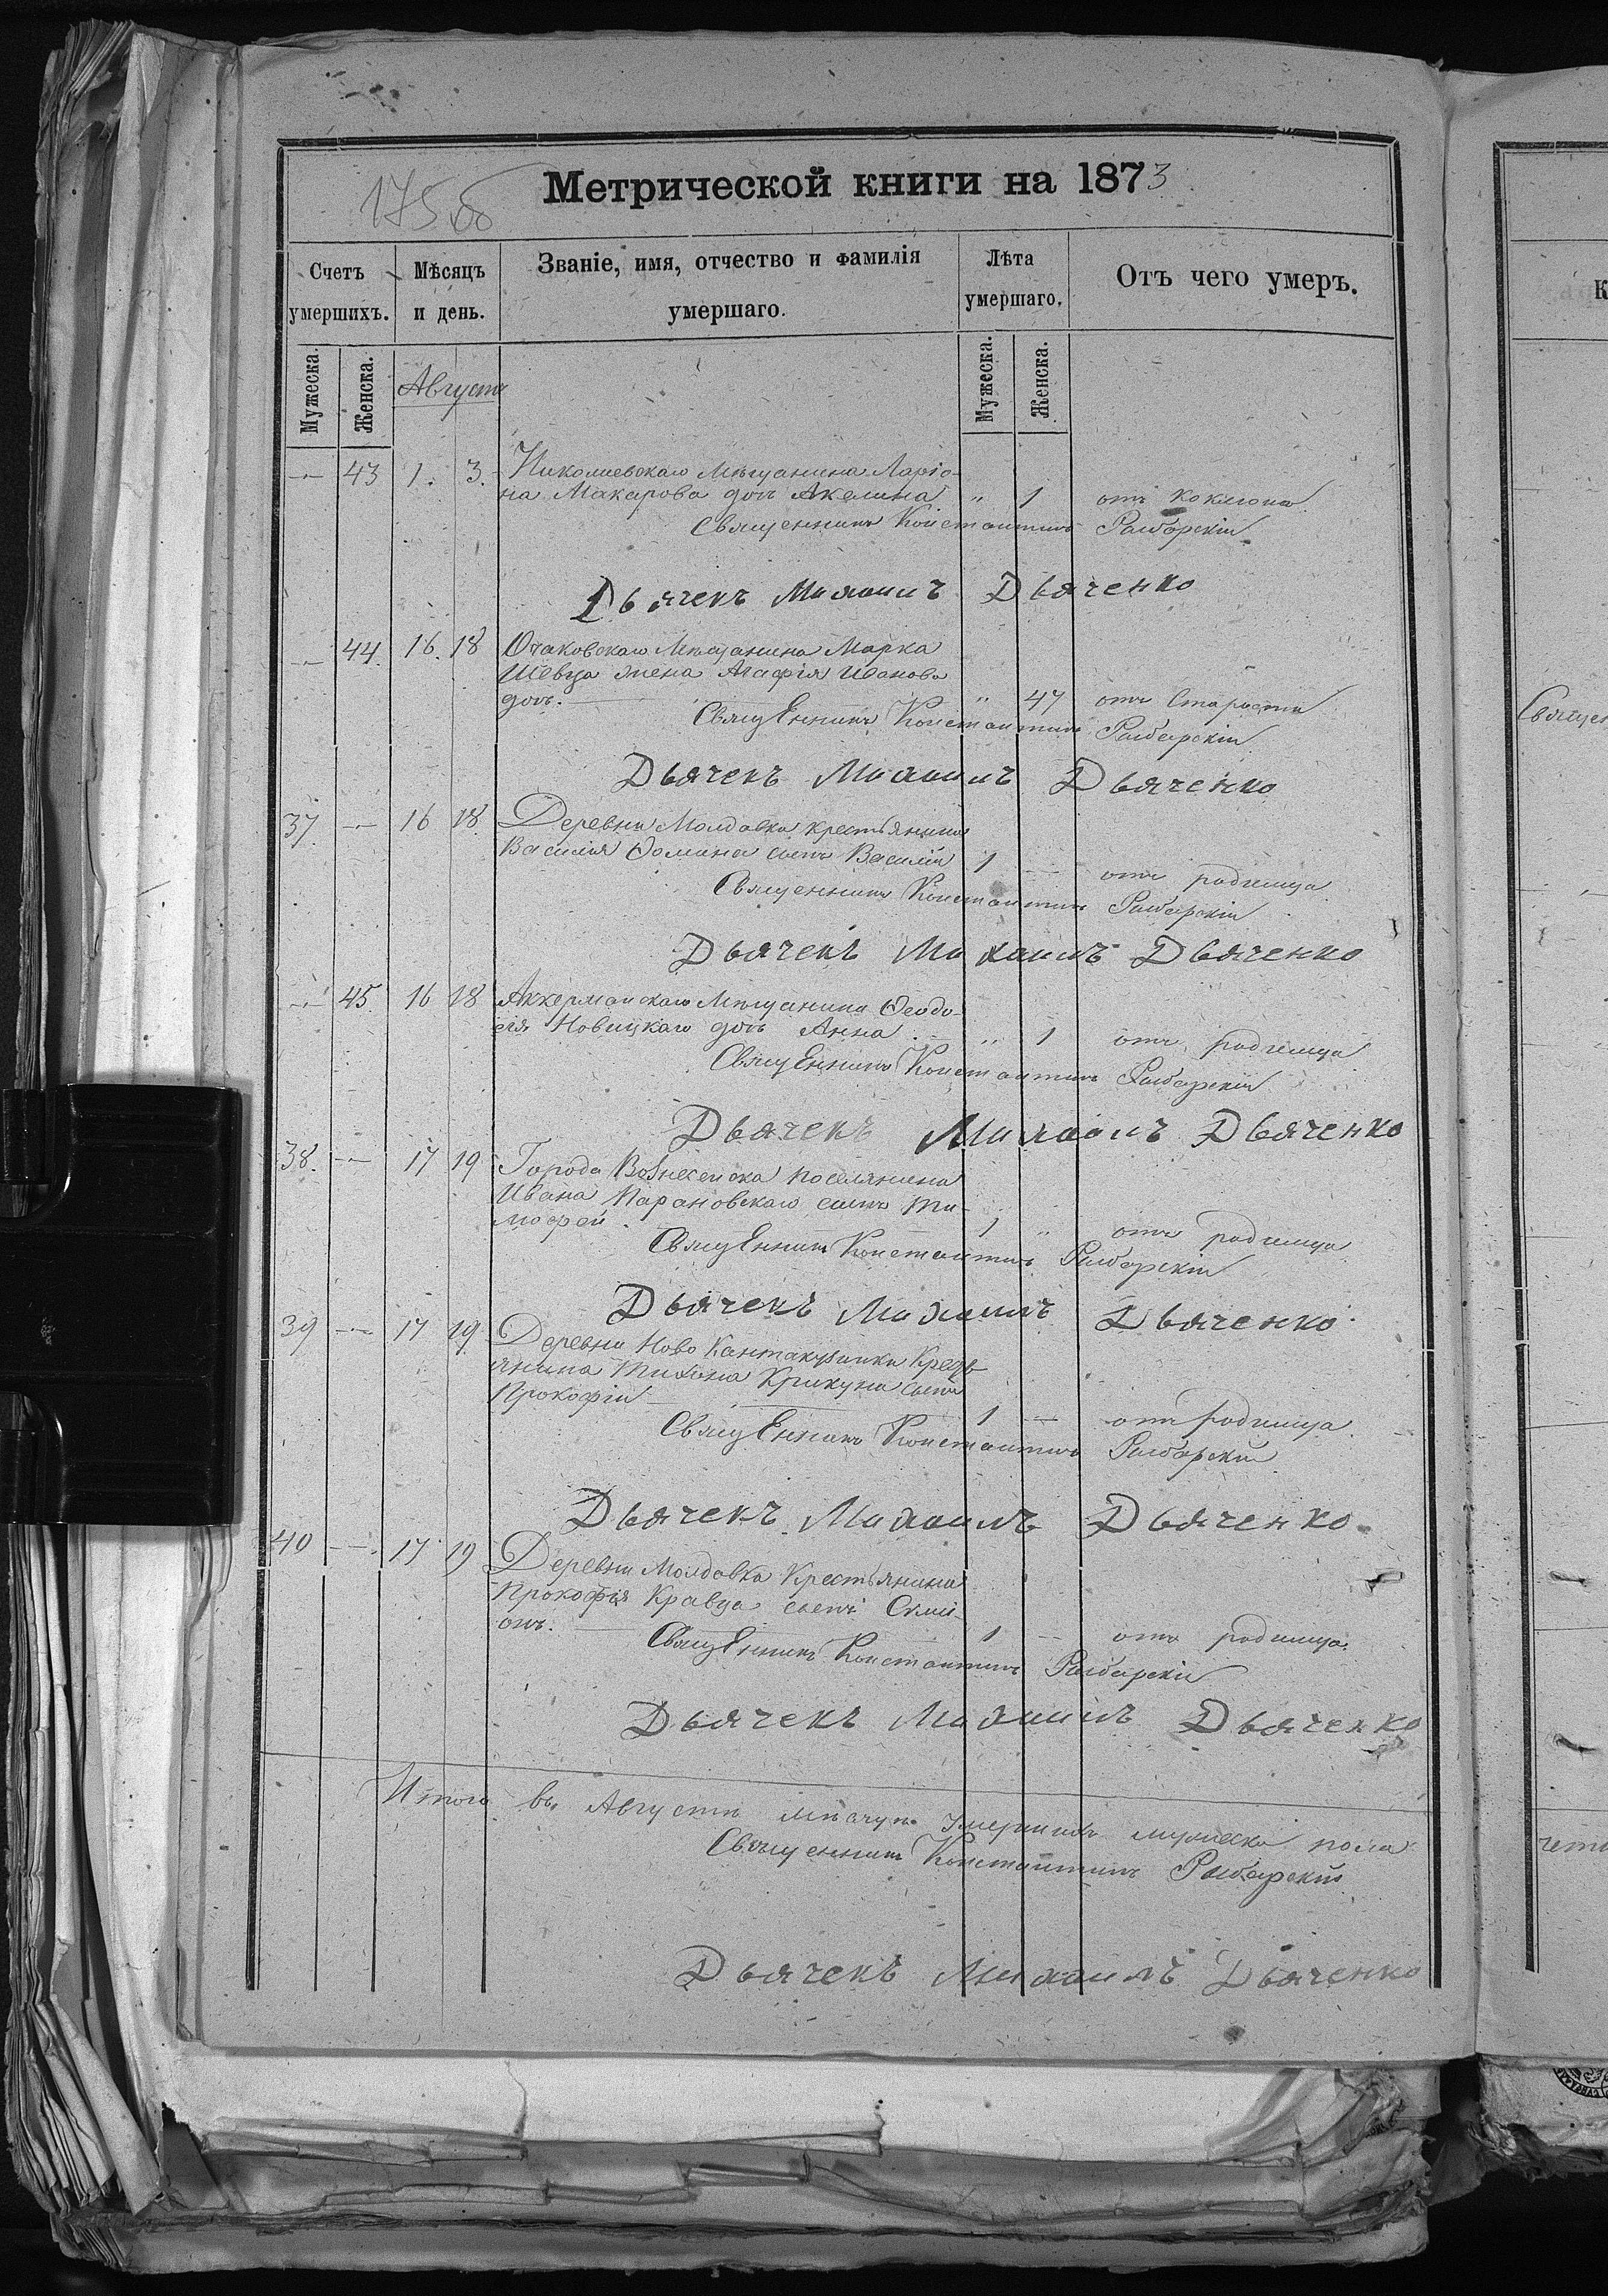 175 об
Метрической книги на 1873
Счетъ умершихъ.
Мѣсяцъ и день.
Званіе, имя, отчество и фамилія умершаго.
Лѣта умершаго.
Отъ чего умеръ.
Мужеска. Женска.
Августъ
Мужеска. Женска.
— 43 1. 3. Николаевскаго Мѣщанина Ларіо-
на Макарова дочь Акелина „ 1 отъ коклюша
Священникъ Константинъ
Дьячекъ Михаилъ Дьяченко
— 44. 16. 18 Очаковскаго Мѣщанина Марка
Шевца жена Агафія Иванова
дочь. — „ 47 отъ Старости
Священникъ Константинъ
Дьячекъ Михаилъ Дьяченко
37. — 16 18 Деревни Молдавка крестьянина
Василія Ѳомина сынъ Василій 1 — отъ родимца
Священникъ Константинъ
Дьячекъ Михаилъ Дьяченко
— 45. 16 18 Аккерманскаго Мѣщанина Ѳеодо-
сія Новицкаго дочь Анна „ 1 отъ родимца
Священникъ Константинъ
Дьячекъ Михаилъ Дьяченко
38. — 17 19 Города Вознесенска поселянина
Ивана Парановскаго сынъ Ти-
мофей. 1 „ отъ родимца
Священникъ Константинъ
Дьячекъ Михаилъ Дьяченко.
39 — 17 19 Деревни Ново Кантакузинки Кресть
янина Тихона Крикуна сынъ
Прокофій — 1 — отъ родимца.
Священникъ Константинъ
Дьячекъ Михаилъ Дьяченко.
40 — 17 19 Деревни Молдовка Крестьянина
Прокофія Кравца сынъ Сими-
онъ. — 1 — отъ родимца.
Священникъ Константинъ
Дьячекъ Михаилъ Дьяченко
Итого въ Августѣ мѣсяцѣ умершихъ мужеска пола
Священникъ Константинъ
Дьячекъ Михаилъ Дьяченко